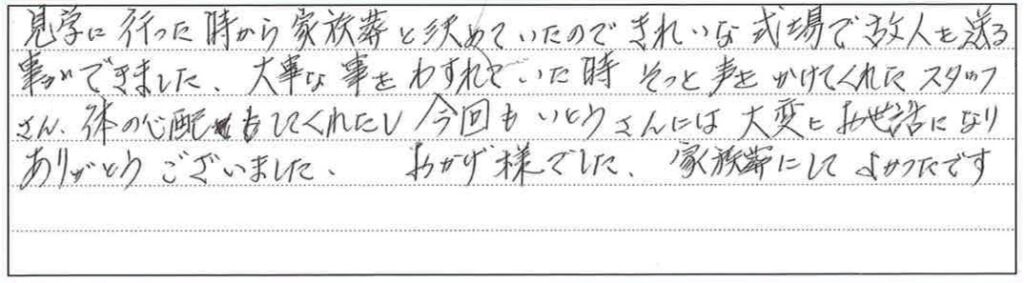 見学に行った時から家族葬と決めていたのできれいな式場で故人を送る
事ができました、大事な事をわすれていた時そっと声をかけてくれたスタッフ
さん、体の心配もしてくれたし今回もいとうさんには大変お世話になり
ありがとうございました、おかげ様でした、家族葬にしてよかったです